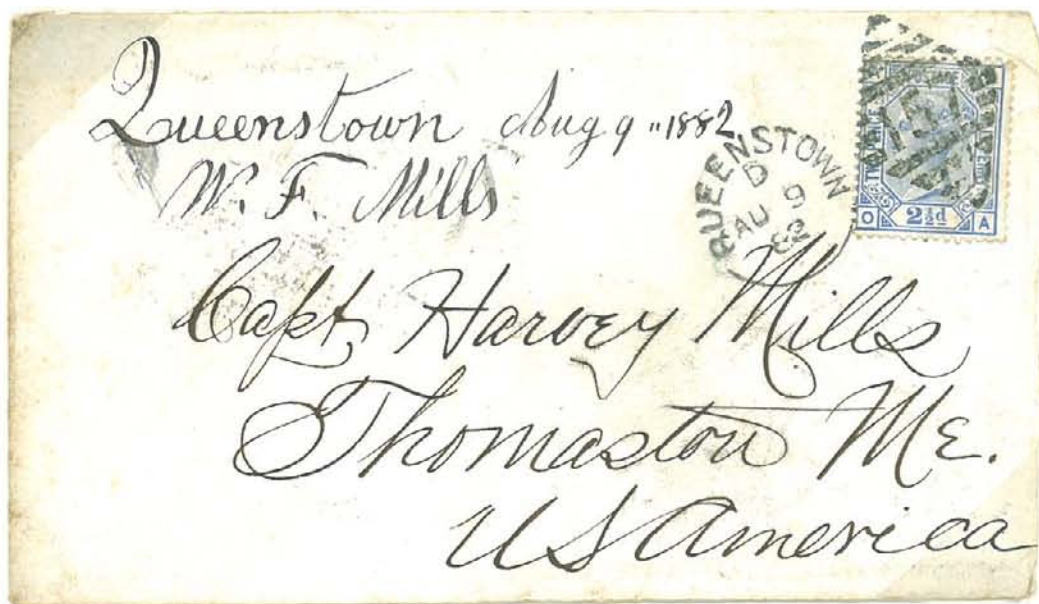 Queenstown Aug 9 " 1882
W. F. Mills
QUEENSTOWN
D
AU 9
82
2½d
O A
Capt Harvey Mills
Thomaston Me.
US America